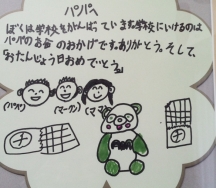 パパへ
ぼくは学校をがんばっています。学校にいけるのは
パパのお金のおかげです。ありがとう。そして、
おたんじょう日おめでとう。
(パパ)
(マークン)
(ママ)